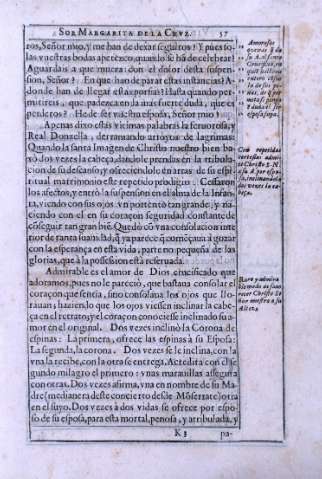 SOR MARGARITA DE LA CRVZ. 57
ros, Señor mio, y me han de dexar seguiros? Y pues so-
las vuestras bodas apetezco, quando se hã de celebrar?
Aguardais a que muera con el dolor desta suspen-
sion, Señor? En que han de parar estas instancias? A-
donde han de llegar estas porfias? Hasta quando per-
mitireis, que padezca en dudas fuerte duda, que es
perderos? He de ser vuestra esposa, Señor mio?
Apenas dixo estas vltimas palabras la feruorosa, y
Real Donzella, derramando arroyos de lagrimas:
Quando la santa Imagen de Christo nuestro bien ba-
xò dos vezes la cabeça, dandole prendas en la tribula-
cion de su descanso, y ofreciendole en arras de su espi-
ritual matrimonio este repetido prodigio. Cessaron
los afectos, y entrò la suspension en el alma de la Infan-
ta, viendo con sus ojos vn portento tan grande, y na-
ciendo con el en su coraçon seguridad constante de
conseguir tan gran biẽ. Quedò cõ vna consolacion inte-
rior de tanta suauidad, q̃ ya parece q̃ començaua à gozar
con la esperança en esta vida, parte no pequeña de las
glorias, que à la possesion està reseruada.
Admirable es el amor de Dios crucificado que
adoramos, pues no le pareciò, que bastaua consolar el
coraçon que sentia, sino consolaua los ojos que llo-
rauan; haziendo, que los ojos viessen inclinar la cabe-
ça en el retrato, y el coraçon conociesse inclinado su a-
mor en el original. Dos vezes inclinò la Corona de
espinas: La primera, ofrece las espinas à su Esposa:
La segunda, la corona. Dos vezes se le inclina, con la
vna la recibe, con la otra se entrega. Acredita con el se-
gundo milagro el primero: vnas marauillas assegura
con otras. Dos vezes afirma, vna en nombre de su Ma-
dre (medianera deste concierto desde Mõserrate) otra
en el suyo. Dos vezes à dos vidas se ofrece por espo-
so de su esposa, para esta mortal, penosa, y atribulada, y
K 3 pa-
Con repetidas